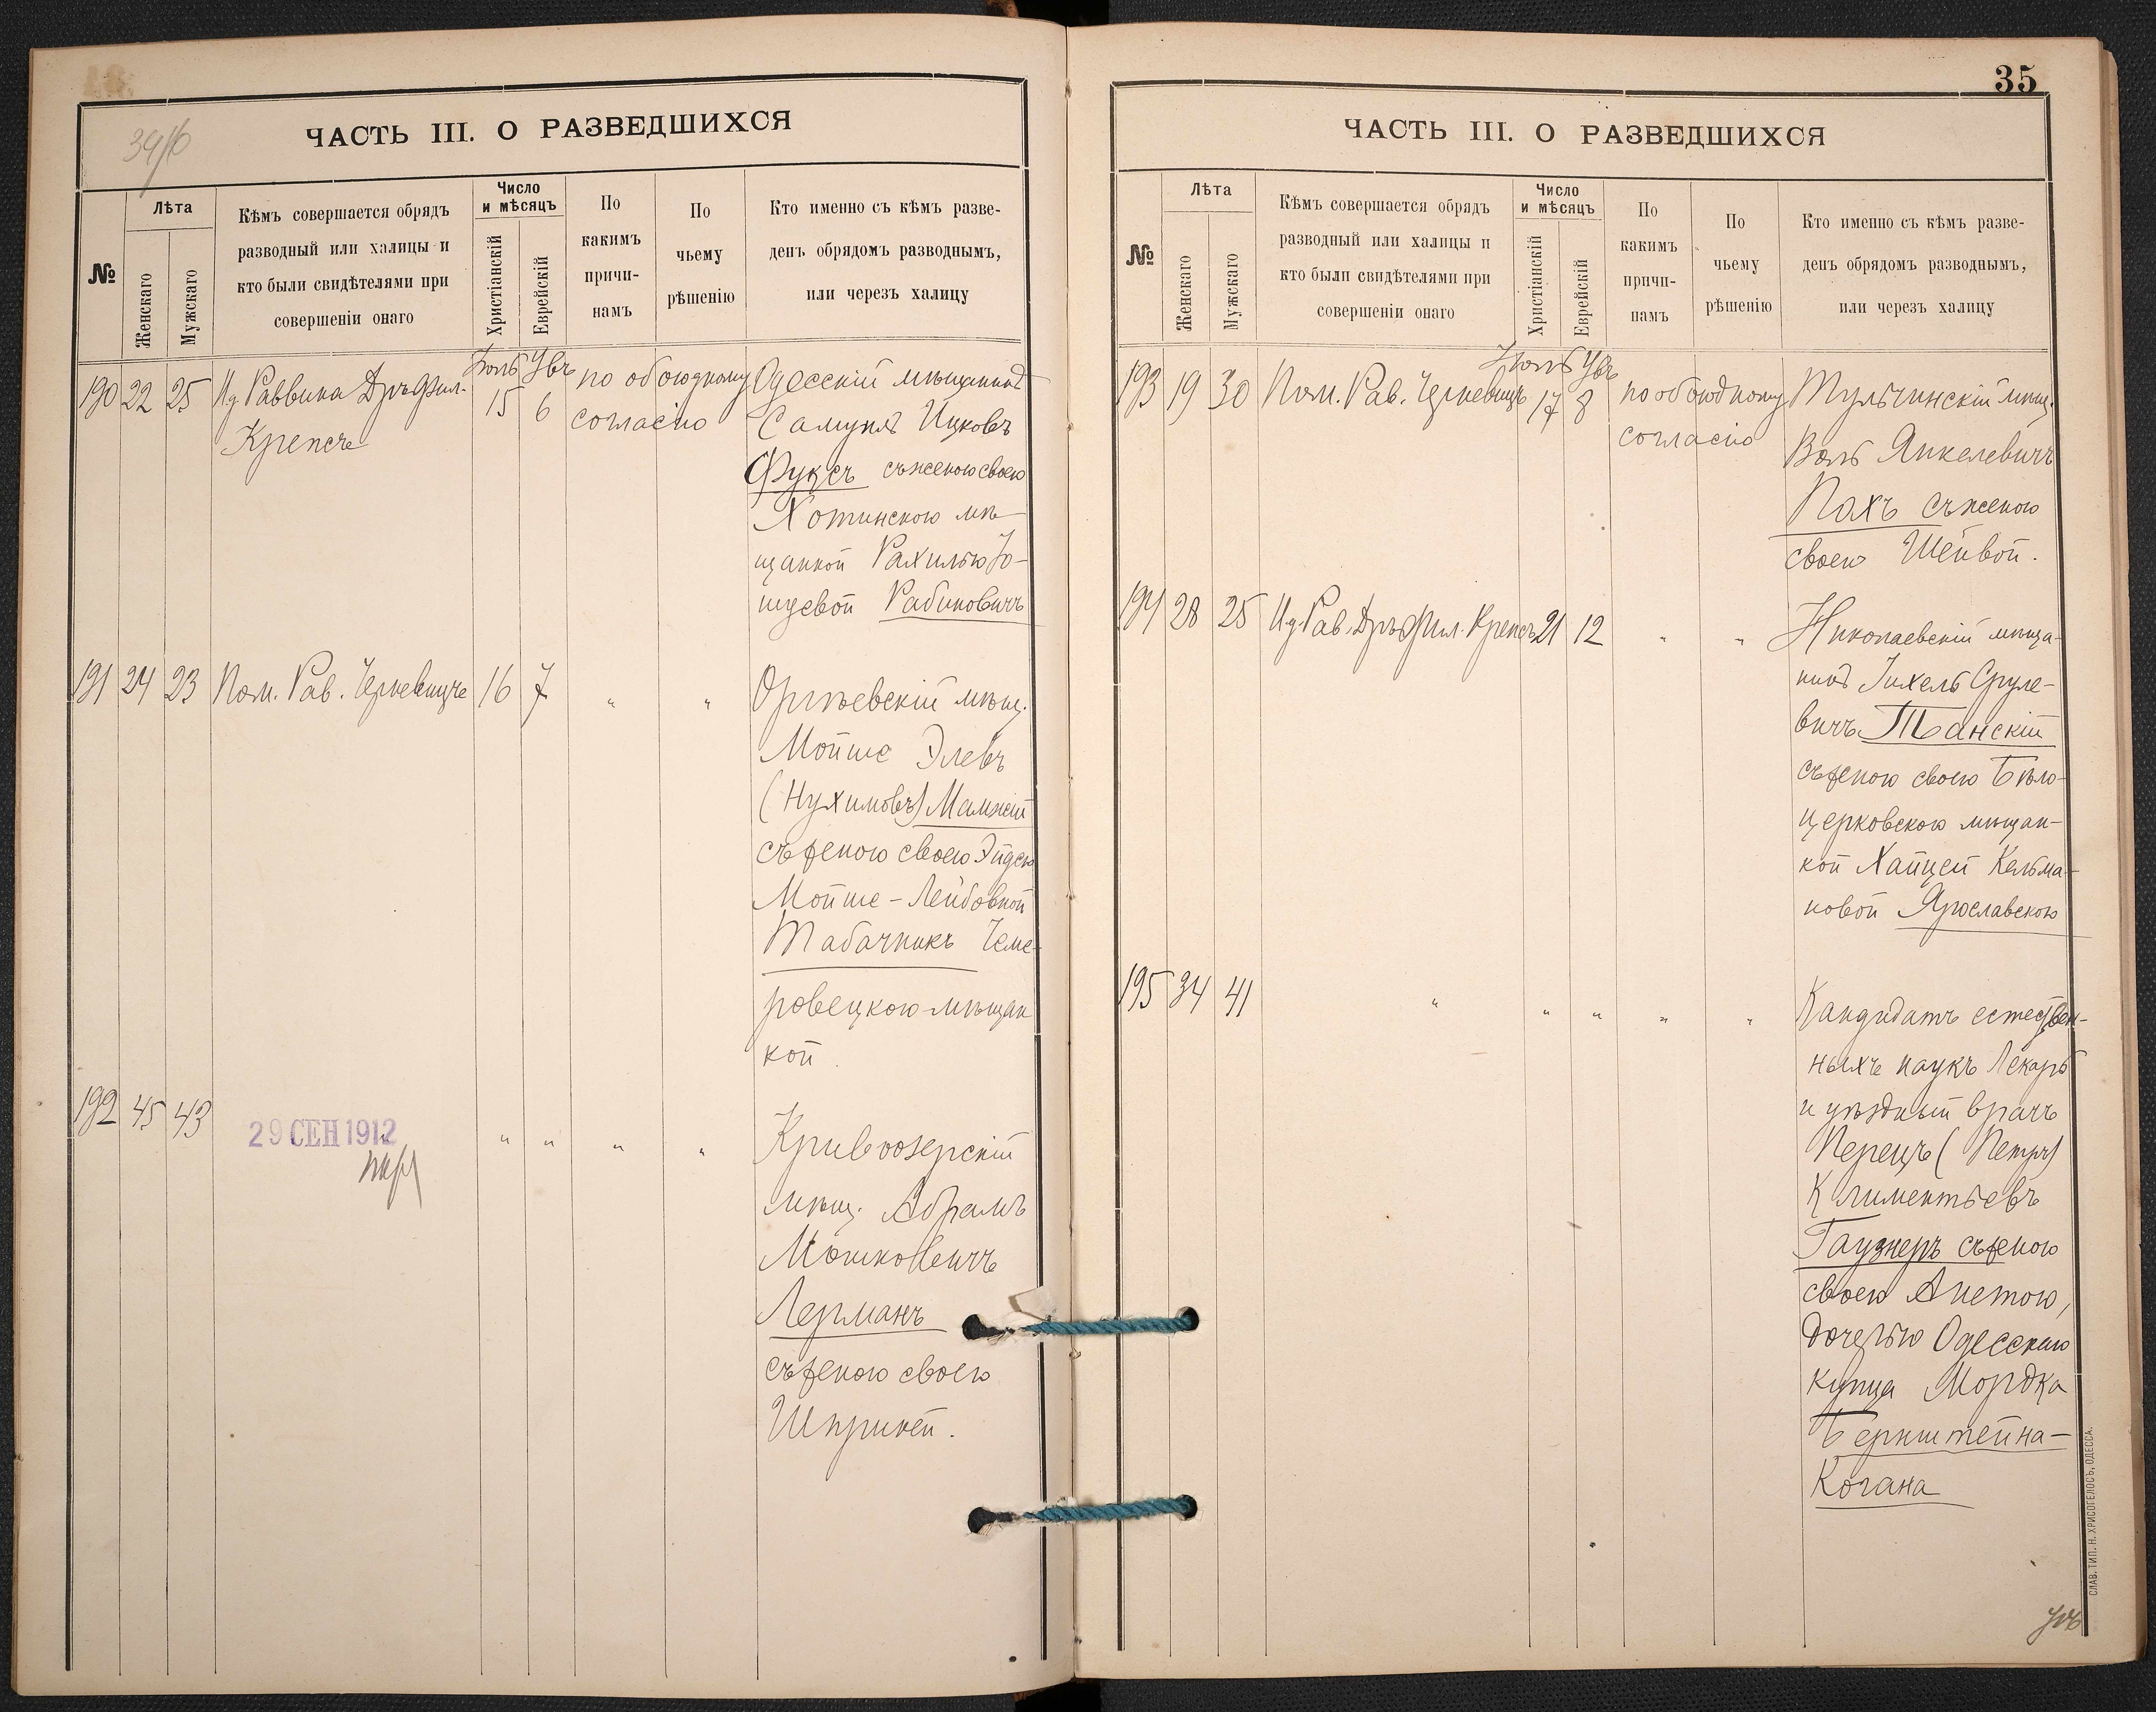 39/16
ЧАСТЬ III. О РАЗВЕДШИХСЯ
№
Лѣта
Женскаго
Мужскаго
Кѣмъ совершается обрядъ
разводный или халицы и
кто были свидѣтелями при
совершеніи онаго
Число
и мѣсяцъ
Христіанскій
Еврейскій
По
какимъ
причи-
намъ
По
чьему
рѣшенію
Кто именно съ кѣмъ разве-
денъ обрядомъ разводнымъ,
или черезъ халицу
190 22 25 Ид Раввина Дръ Фил. 15 6 по обоюдному Одесскій мѣщанинъ
Крепсъ согласію Самуилъ Ицковъ
Фуксъ съ женою своею
Хотинскою мѣ-
щанкой Рахилью Іо-
шуевой Рабиновичъ
191 24 23 Пом. Рав. 16 7 " " Оргѣевскій мѣщ.
Мойше Элевъ
(Нухимовъ)
съ женою своею Эйдею
Мойше-Лейбовной
Табачникъ Чеме-
ровецкою мѣщан
кой
192 45 43 " " " " Кривоозерскій
29 СЕН 1912
мѣщ. Абрамъ
Мошковичъ
Лерманъ
съ женою своею
Шприней.
35
ЧАСТЬ III. О РАЗВЕДШИХСЯ
№
Лѣта
Женскаго
Мужскаго
Кѣмъ совершается обрядъ
разводный или халицы и
кто были свидѣтелями при
совершеніи онаго
Число
и мѣсяцъ
Христіанскій
Еврейскій
По
какимъ
причи-
намъ
По
чьему
рѣшенію
Кто именно съ кѣмъ разве-
денъ обрядомъ разводнымъ,
или черезъ халицу
193 19 30 Пом. Рав. 17 8 по обоюдному Тульчинскій мѣщ.
согласію Воль Янкелевичъ
Пахъ съ женою
своею Шейвой.
194 28 25 Ид Рав. Дръ Фил. Крепсъ 21 12 " " Николаевскій мѣща-
нинъ Іихель Сруле-
вичъ Танскій
съ женою своею Бѣло-
церковскою мѣщан-
кой Хайцей Кельма-
новой Ярославскою
195 34 41 " " " " " Кандидатъ естествен-
ныхъ наукъ Лекарь
и уѣздный врачъ
Перецъ (Петръ)
Климентьевъ
Гаузнеръ съ женою
своею Анетою,
дочерью Одесскаго
купца Мордка
Бернштейна-
Когана
СЛАВ. ТИП. Н. ХРИСОГЕЛОСЪ, ОДЕССА.